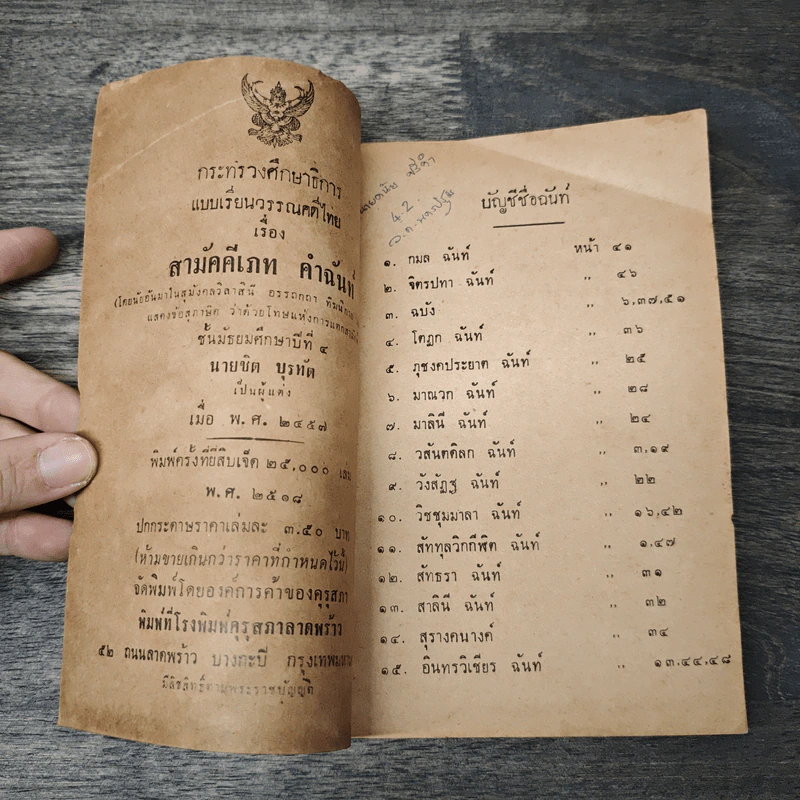 กระทรวงศึกษาธิการ
แบบเรียนวรรณคดีไทย
เรื่อง
สามัคคีเภท คำฉันท์
(โดยนัยอันมาในสุมังคลวิลาสินี อรรถกถา
แสดงข้อสุภาษิต ว่าด้วยโทษแห่งการแตก
ชั้นมัธยมศึกษาปีที่ ๔
นายชิต บุรทัต
เป็นผู้แต่ง
เมื่อ พ.ศ. ๒๔๕๗
พิมพ์ครั้งที่ยี่สิบเจ็ด ๒๕,๐๐๐ เล่ม
พ.ศ. ๒๕๑๘
ปกกระดาษราคาเล่มละ ๓.๕๐ บาท
(ห้ามขายเกินกว่าราคาที่กำหนดไว้นี้)
จัดพิมพ์โดยองค์การค้าของคุรุสภา
พิมพ์ที่โรงพิมพ์คุรุสภาลาดพร้าว
๕๒ ถนนลาดพร้าว บางกะปิ กรุงเทพมหาน
มีลิขสิทธิ์ตามพระราชบัญญัติ
4.2.
บัญชีชื่อฉันท์
๑. กมล ฉันท์ หน้า ๔๑
๒. จิตรปทา ฉันท์ ,, ๔๖
๓. ฉบัง ,, ๖,๓๗,๕๑
๔. โตฎก ฉันท์ ,, ๓๖
๕. ภุชงคประยาต ฉันท์ ,, ๒๕
๖. มาณวก ฉันท์ ,, ๒๘
๗. มาลินี ฉันท์ ,, ๒๔
๘. วสันตดิลก ฉันท์ ,, ๓,๑๙
๙. วังสัฏฐ ฉันท์ ,, ๒๒
๑๐. วิชชุมมาลา ฉันท์ ,, ๑๖,๔๒
๑๑. สัททุลวิกกีฬิต ฉันท์ ,, ๑,๔๗
๑๒. สัทธรา ฉันท์ ,, ๓๑
๑๓. สาลินี ฉันท์ ,, ๓๒
๑๔. สุรางคนางค์ ,, ๓๔
๑๕. อินทรวิเชียร ฉันท์ ,, ๑๓,๔๔,๔๘